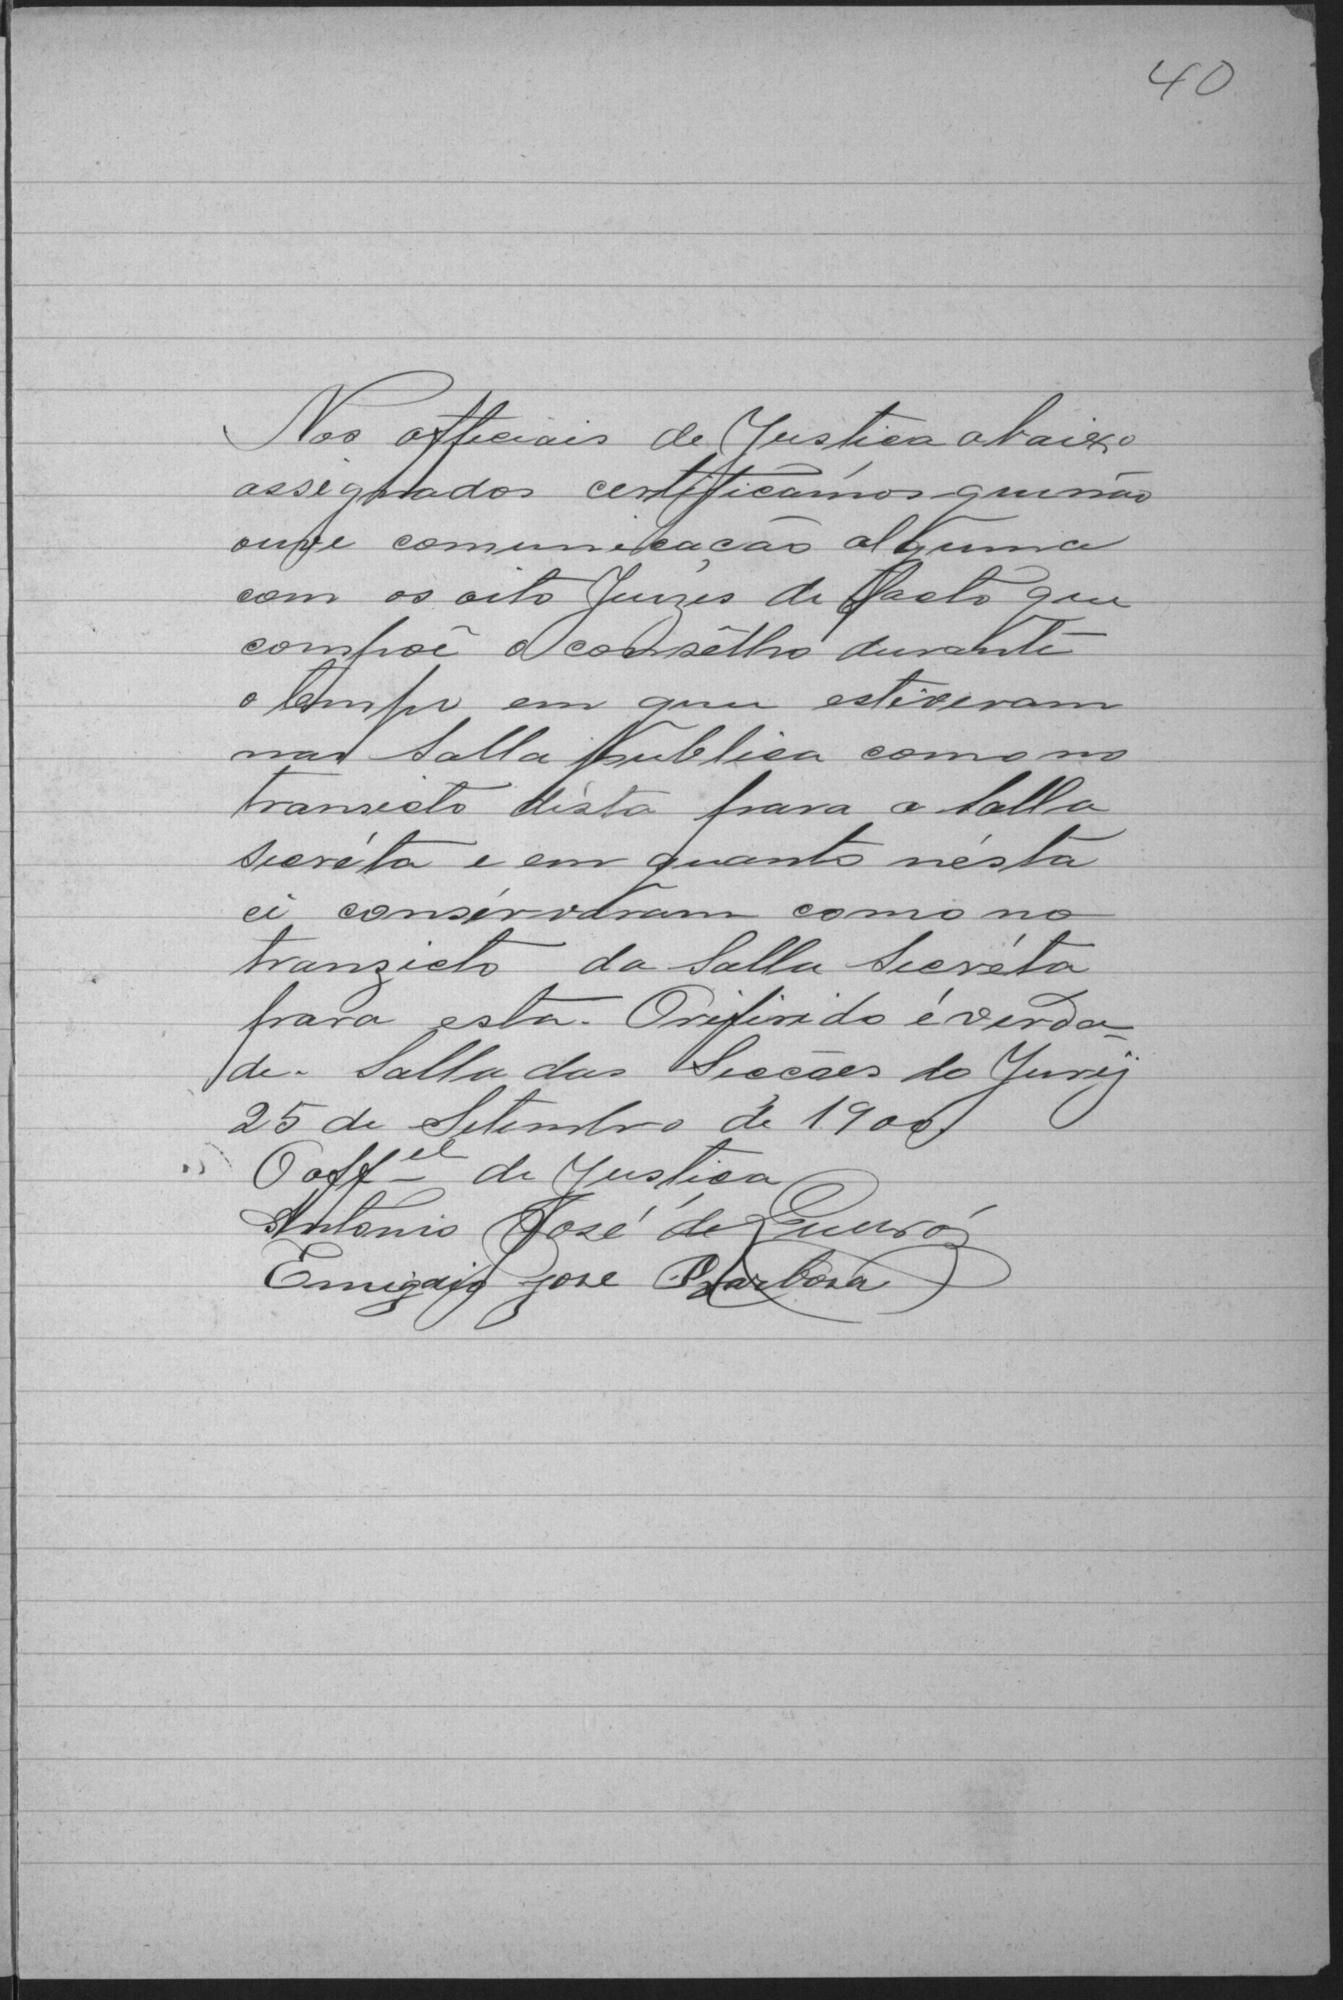 40
Nos officiais de Justica abaixo
assignados certificamos que não
ouve comunicação alguma
com os oito Juizes de Facto que
compõe o consêlho durante
o tempo em que estiveram
na Salla publica como no
tranzicto désta para a Salla
Secréta e em quanto nésta
ci consérvaram como no
tranzicto da Salla Secréta
para esta. O rifirido é verda-
de. Salla das Secções do Jury
25 de Setembro de 1900
O offel de Justica
Antonio José de Queiróz
Emigdio Jose Barbosa